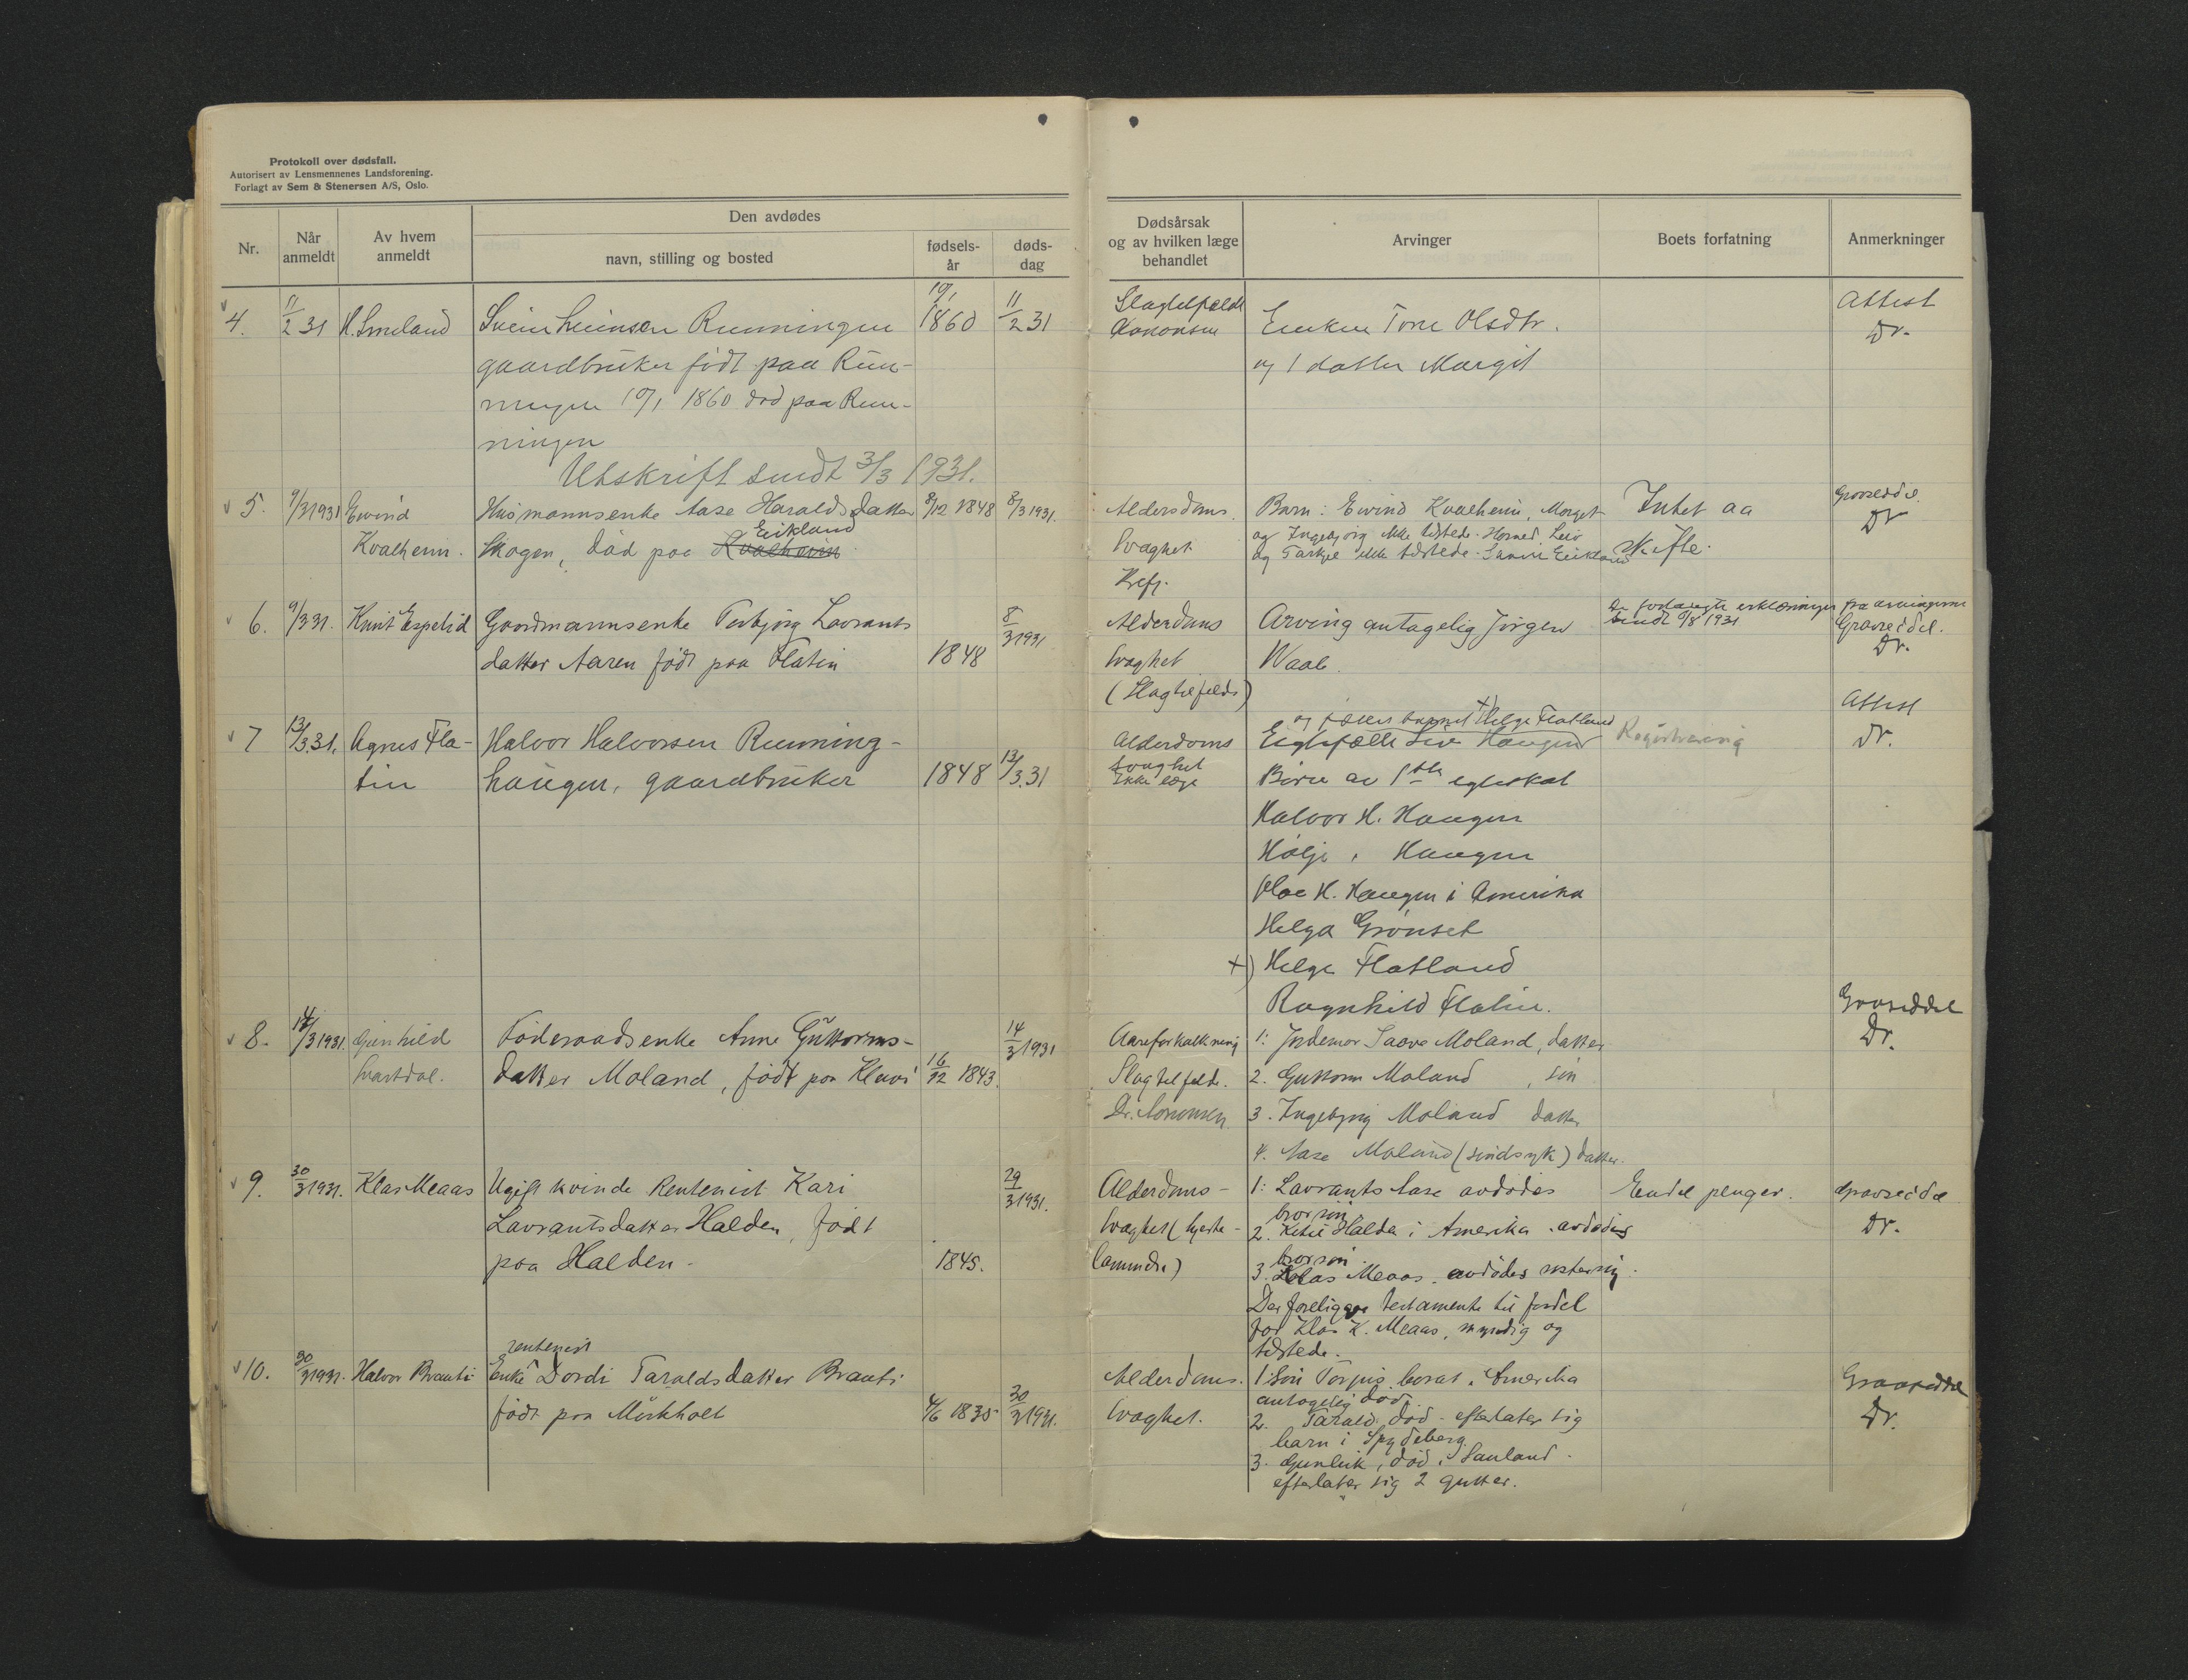 Protokoll over dødsfall.
Autorisert av Lensmennenes Landsforening.
Forlagt av Sem & Stenersen A/S, Oslo.
Nr.
Når anmeldt
Av hvem anmeldt
Den avdødes
navn, stilling og bosted
fødsels-år
døds-dag
Dødsårsak
og av hvilken læge
behandlet
Arvinger
Boets forfatning
Anmerkninger
4. 11/2 31 H. Smeland Svein Sveinsen Runningen 10/1 1860 11/2 31
gaardbruker født paa Run-
ningen 10/1 1860 død paa Run-
ningen
Utskrift sendt 3/3 1931.
Slagtilfælde
Enken Tone Olsdtr.
og 1 datter Margit
Attest
Dr.
5. 9/3 1931 Eivind Husmannsenke Aase Haraldsdatter 8/12 1848 8/3 1931.
Eikland
Kvalheim. Skogen, død paa Kvalheim
Alderdoms.
svaghet
Barn: Eivind Kvalheim, Marget
og Ingebjørg ikke tilstede.
og Tarkjel ikke tilstede.
Intet aa
skifte.
Gravseddel
Dr
6. 9/3 31. Knut Espelid Gardmannsenke Torbjørg Lavrants 8/3 1931
datter Aaren født paa Flatin 1848
Alderdoms
svaghet
(Slagtilfelde)
Arving antagelig Jørgen
Waale.
De forlangte erklæringer fra arvingerne
sendt 6/8 1931
Gravseddel.
Dr.
7 13/3 31. Agnes Fla- Halvor Halvorsen Running-
tin haugen, gaardbruker 1848 13/3 31
Alderdoms
svaghet
Ikke læge
og Helge Flatland
Egtefælle Liv Haugen
Børn av 1ste egteskab
Halvor H. Haugen
Hølje " Haugen
Olav H. Haugen i Amerika
Helga Grønset
+) Helge Flatland
Ragnhild Flatin.
Registrering
Attest
Dr.
8. 14/3 1931. Gunhild Føderaadsenke Anne Guttorms- 14/3 1931
Svartdal. datter Moland, født paa Kleivi 16/12 1843.
Aareforkalkning
Slagtilfelde.
Dr. Aanonsen
1: Jordemor Taava Moland, datter
2. Guttorm Moland, søn
3. Ingebjørg Moland datter
4. Aase Moland (sindsyk) datter.
Gravseddel
Dr.
9. 30/3 1931. Klas Meaas Ugift kvinde Rentenist Kari 29/3 1931.
Lavrantsdatter Halden, født
paa Halden. 1845.
Alderdoms-
svaghet (hjerte-
lammelse)
1: Lavrants Aase avdødes
brorsøn.
2. Ketil Halden i Amerika avdødes
brorsøn.
3. Klas Meaas. avdødes søstersøn.
Der foreligger testamente til fordel
for Klas K. Meaas, myndig og
tilstede.
Endel penger.
Gravseddel
Dr.
rentenist
10. 30/3 1931. Halvor Brauti Enke Dordi Taraldsdatter Brauti
født paa Mørkholt 4/6 1835 30/3 1931.
Alderdoms.
svaghet.
1. Søn Torjus bosat i Amerika
antagelig død.
2. Tarald død - efterlater sig
barn i Spydeberg.
3. Gunleik, død i Sauland.
efterlater sig 2 gutter.
Gravseddel
Dr.